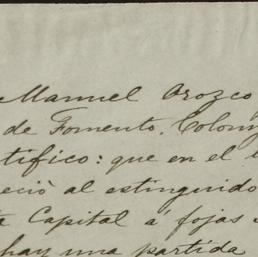 Manuel Orozco
de Fomento, Colon
tifico: que en el
eció al estinguido
Capital á fojas
hay una partida